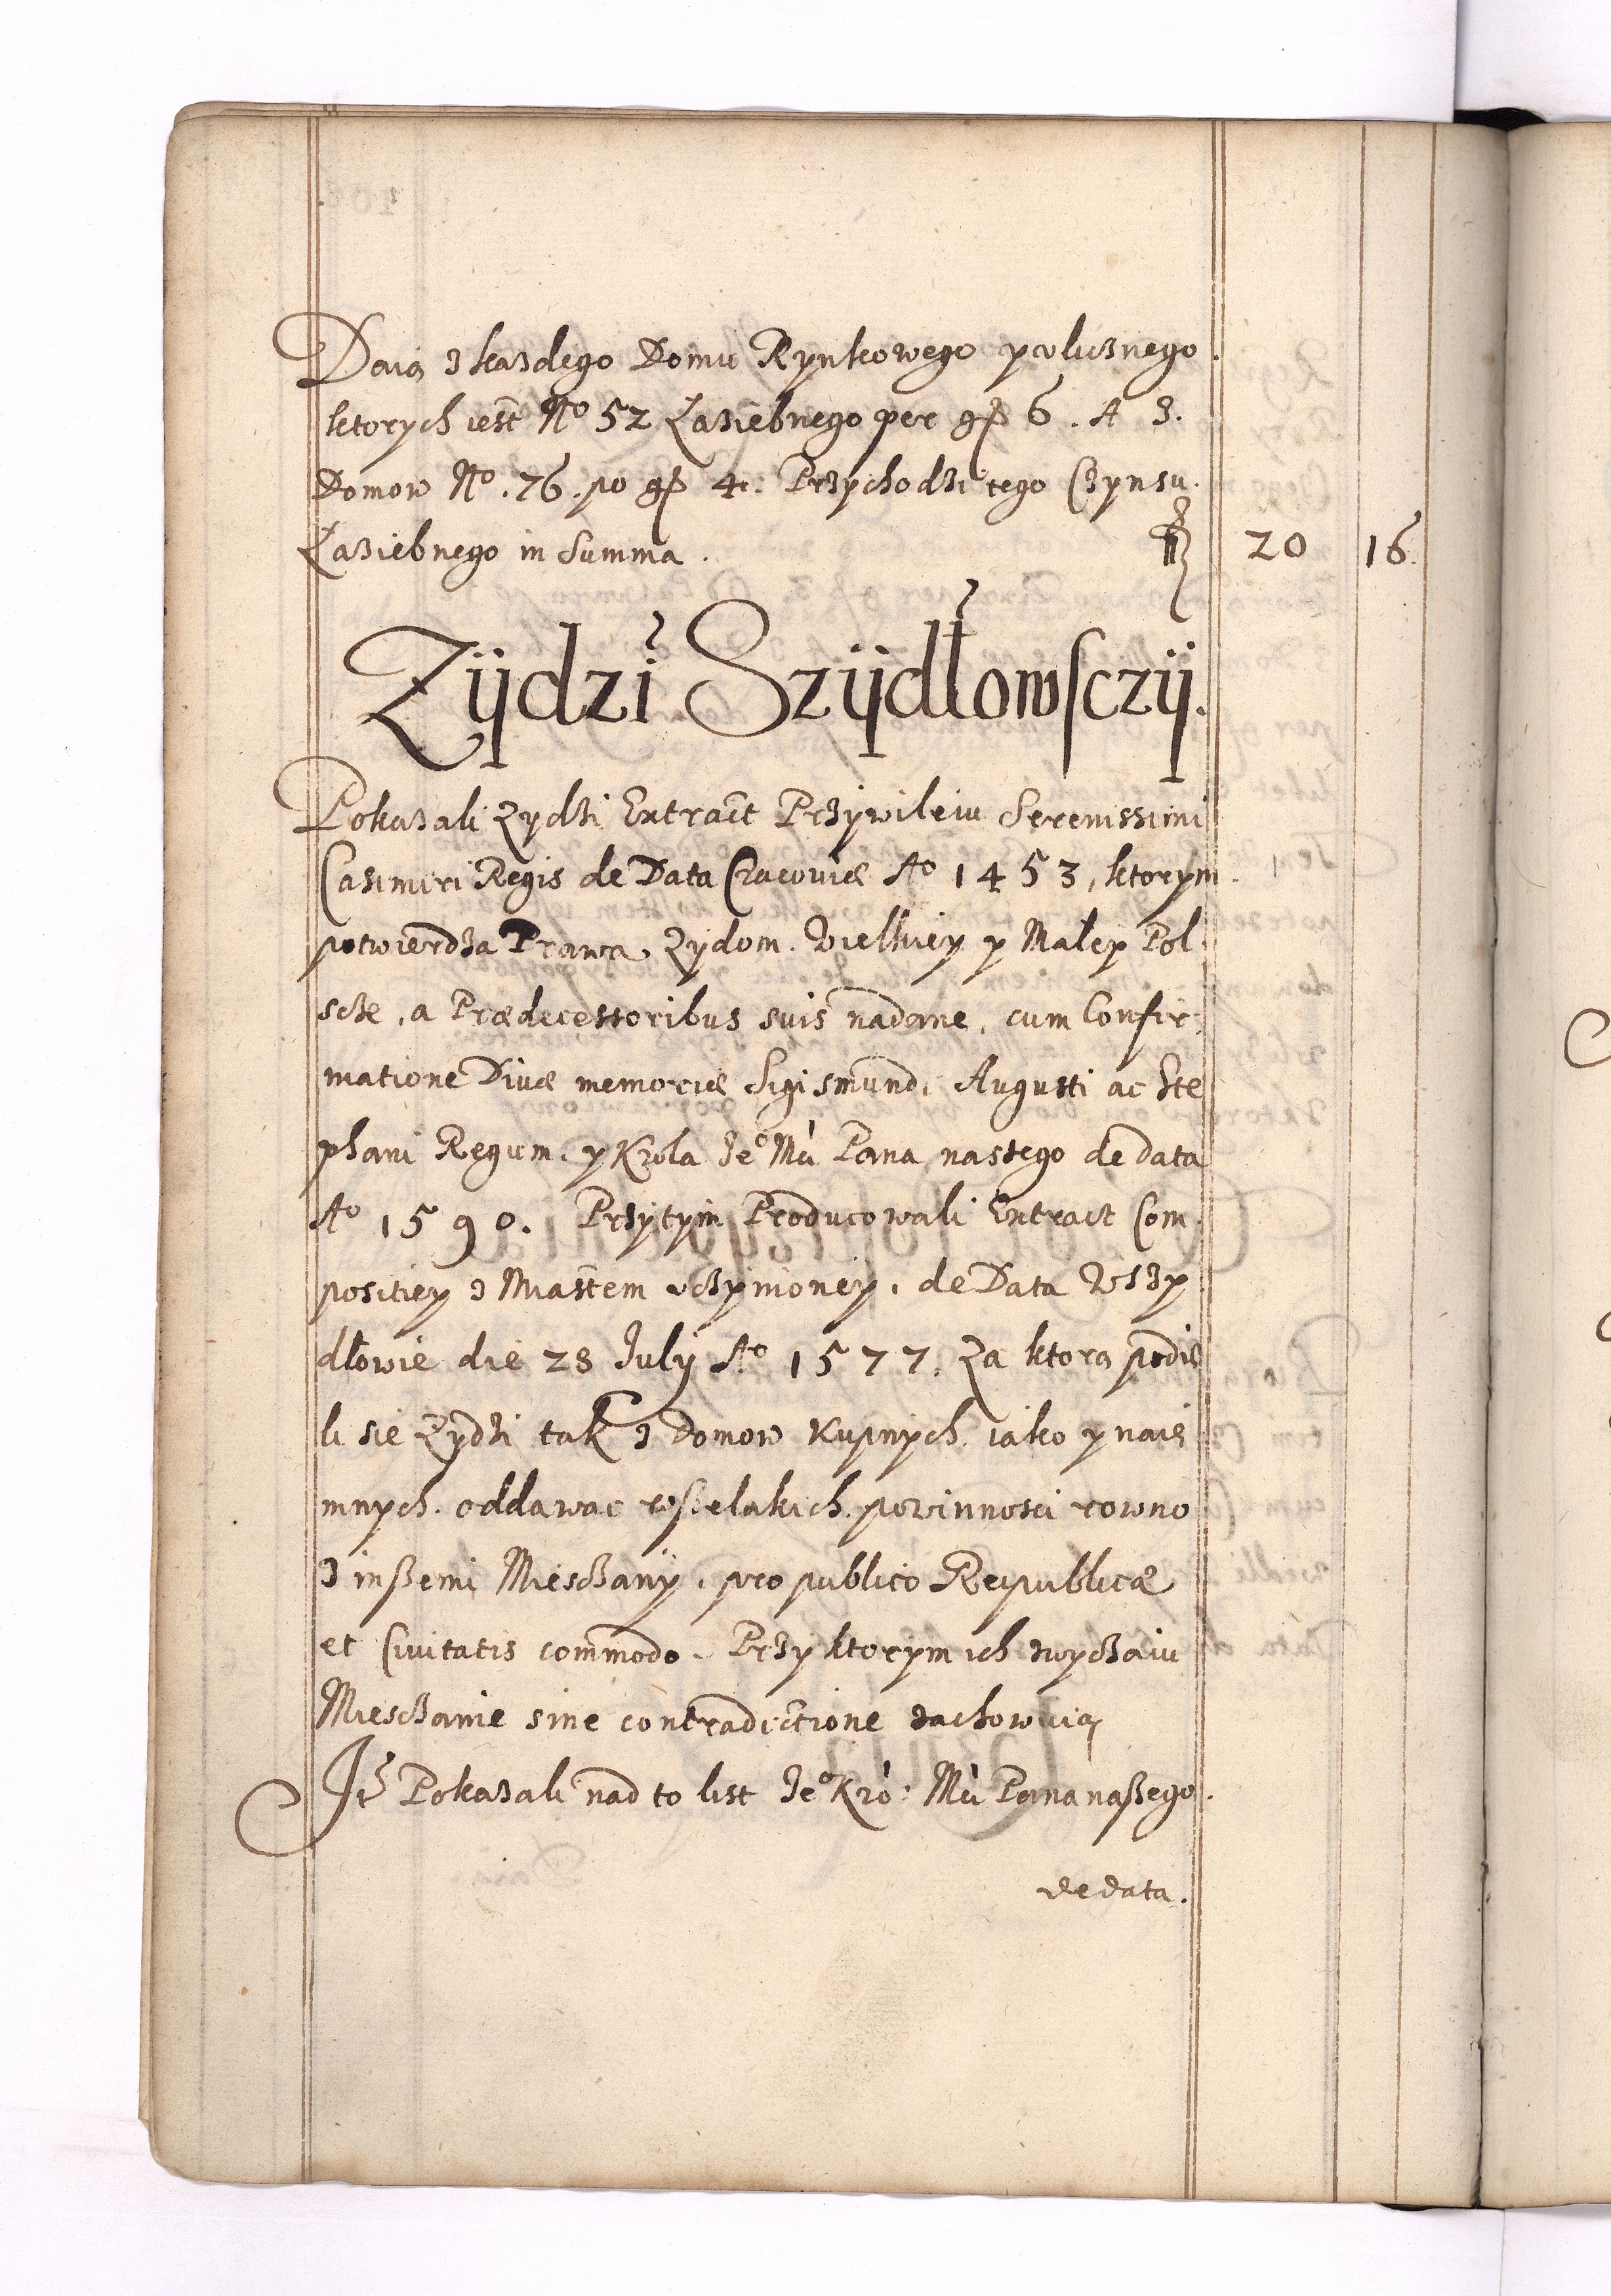 Daią z kazdego Domu Rynkowego y vlicznego
ktorych iest No 52 Łaziebnego per gr 6. A z
Domow No. 76. po gr 4. Przychodzi tego Czynsu
Łaziebnego in Summa. fl 20 16.
Zijdzi Szijdłowsczij.
Pokazali Zydzi Extract Przywileiu Serenissimi
Casimiri Regis de Data Cracouiæ Ao 1453, ktorym
potwierdza Prawa Zydom Wielkiey y Małey Pol
scze, a Prædecessoribus suis nadane, cum Confir
matione Diuæ memoriæ Sigismundi Augusti ac Ste
phani Regum, y Krola Jeo Mci Pana naszego de data
Ao 1590. Przytym Producowali Extract Com
positiey z Miastem vczynioney, de Data W Szy
dłowie die 28 July Ao 1577. Za ktorą podię
li sie Zydzi tak z domow Kupnych iako y naie
mnych oddawac wszelakich powinnosci rowno
z inszemi Miesczany, pro publico Reipublicæ
et Ciuitatis commodo. Przy ktorym ich zwyczaiu
Miesczanie sine contradictione zachowuią
It Pokazali nad to list Jeo Kro: Mci Pana naszego.
de data.